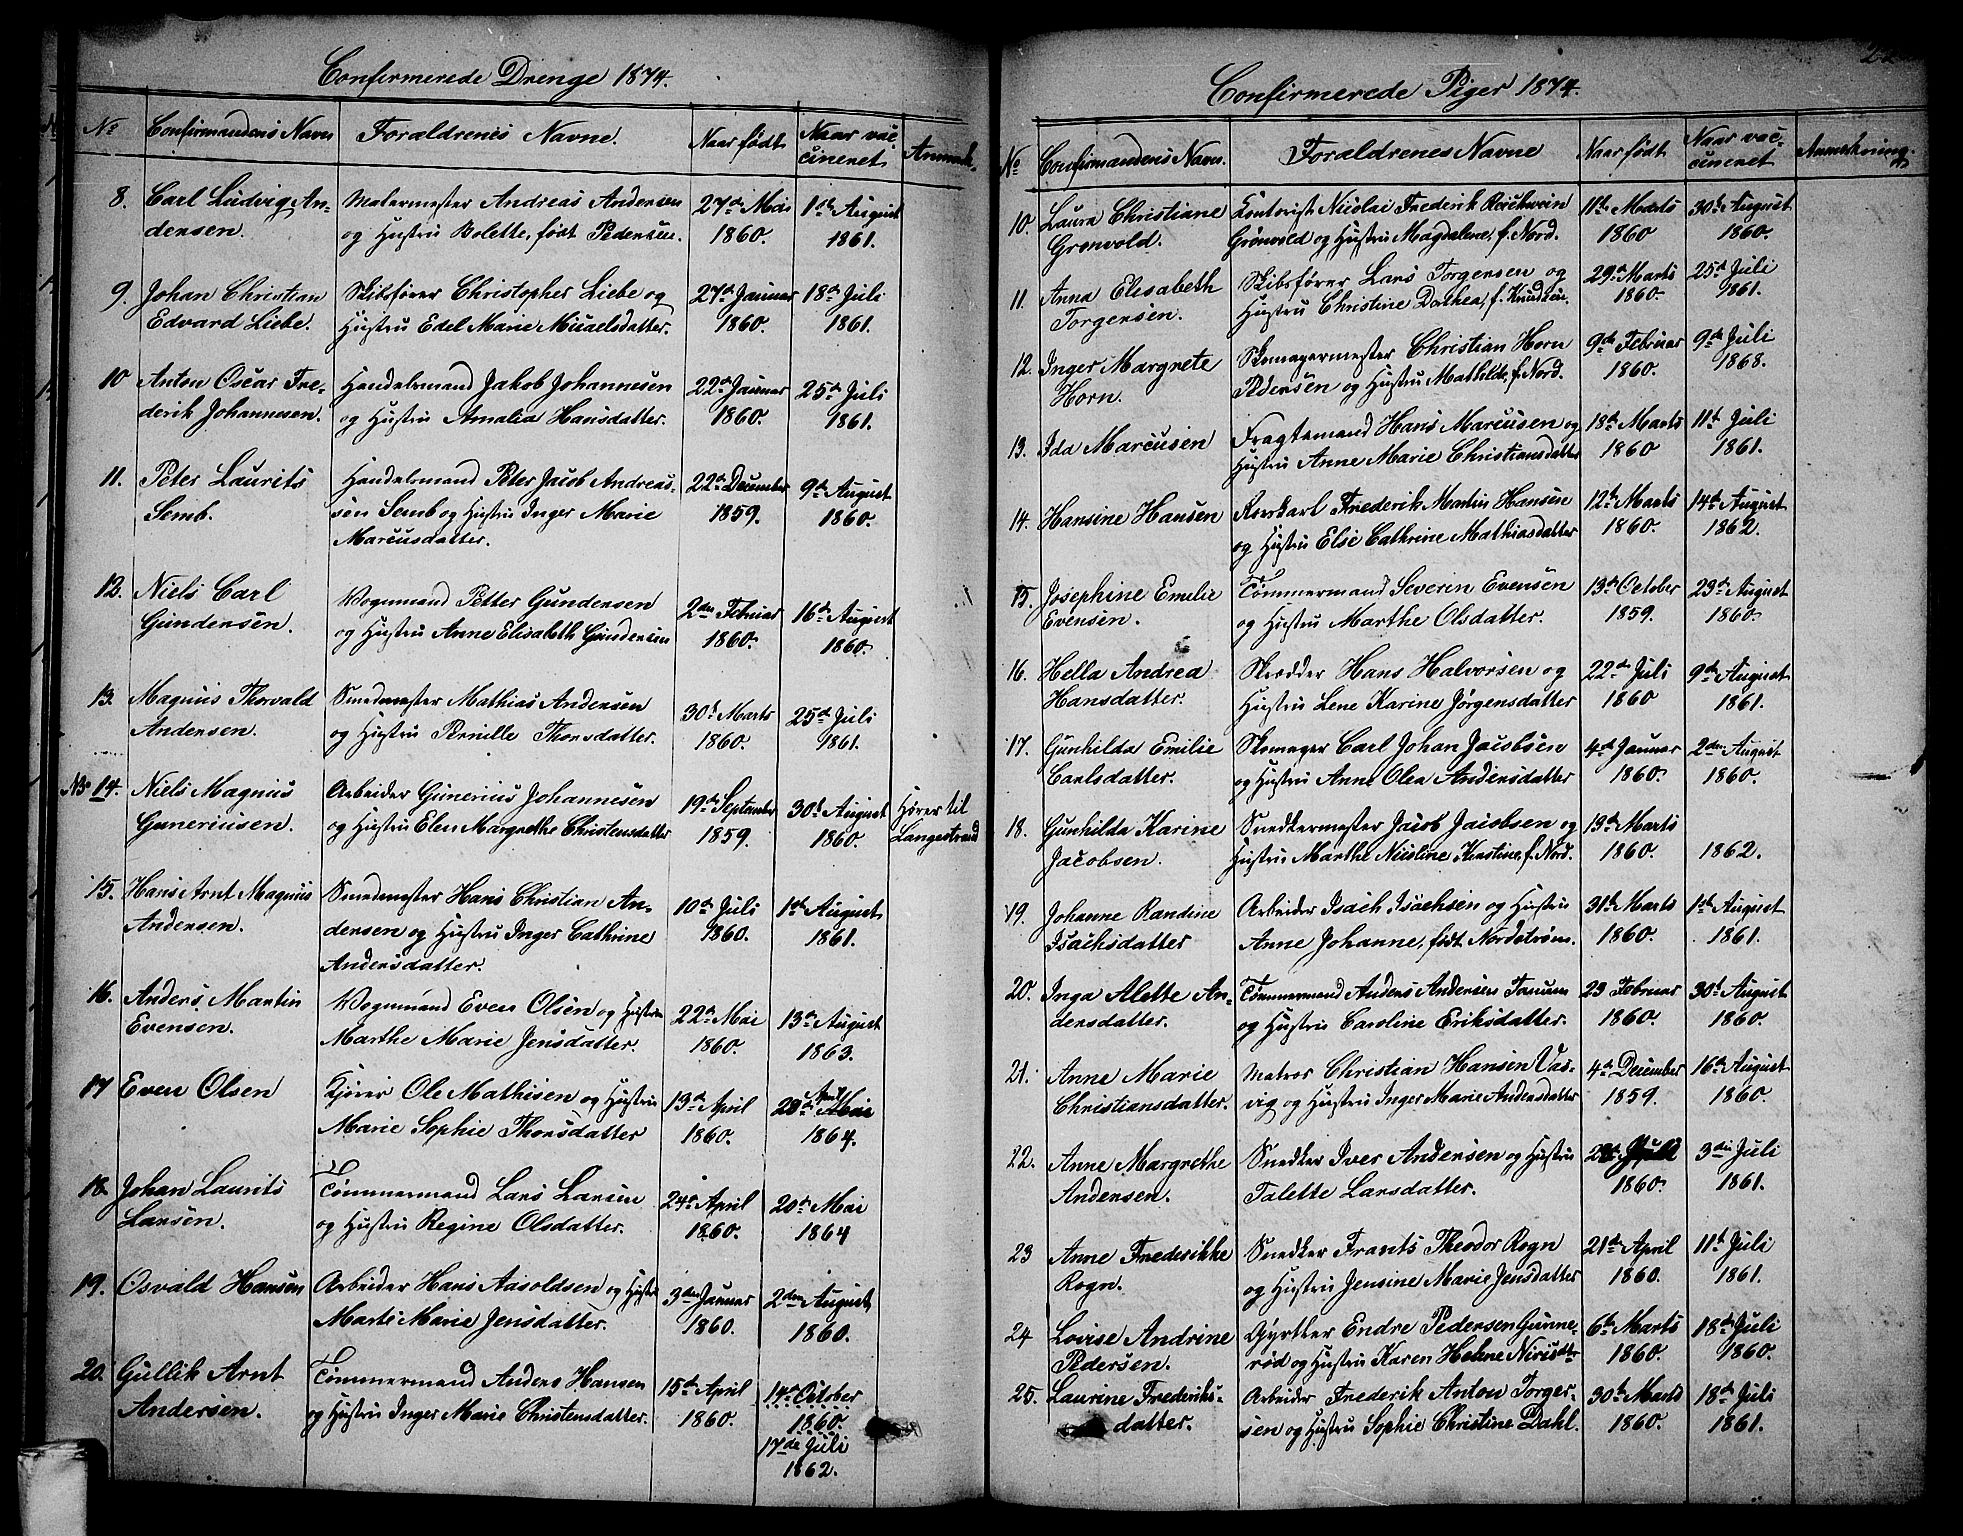 Confirmerede Drenge 1874.
No Confirmandens Navn Forældrenes Navne. Naar født Naar vac-
cineret Anmærk.
8. Carl Ludvig An- Malermester Andreas Andersen 27de Mai 1ste August
densen. og Hustru Bolette, født Pedersen. 1860. 1861.
9. Johan Christian Skibsfører Christopher Liebe og 27de Januar 18de Juli
Edvard Liebe. Hustru Edel Marie Micaelsdatter. 1860. 1861.
10 Anton Oscar Fre- Handelsmand Jakob Johannesen 22de Januar 25de Juli
derik Johannesen. og Hustru Amalia Hansdatter. 1860. 1861.
11. Peter Laurits Handelsmand Peter Jacob Andreas- 22de December 9de August
Semb. sen Semb og Hustru Inger Marie 1859. 1860.
Marcusdatter.
12. Niels Carl Vognmand Petter Gundersen 2den Februar 16de August
Gundersen. og Hustru Anne Elisabeth Gundersen 1860. 1860.
13. Magnus Thorvald Smedmester Mathias Andersen 30te Marts 25de Juli
Andersen. og Hustru Pernille Thorsdatter. 1860. 1861.
NB 14. Niels Magnus Arbeider Gunerius Johannesen 19de September 30te August Hører til
Guneriusen. og Hustru Elen Margrethe Christensdatter 1859. 1860. Langestrand
15. Hans Arnt Magnus Smedmester Hans Christian An- 10de Juli 1ste August
Andersen. dersen og Hustru Inger Cathrine 1860. 1861.
Andersdatter.
16. Anders Martin Vognmand Even Olsen og Hustru 22de Mai 13de August
Evensen. Marthe Marie Jensdatter. 1860. 1863.
17 Even Olsen Kjører Ole Mathisen og Hustru 13de April 23de April Mai
Marie Sophie Thorsdatter 1860. 1864.
18. Johan Laurits Tømmermand Lars Larsen 24de April 20de Mai
Larsen. og Hustru Regine Olsdatter. 1860. 1864
19. Osvald Hansen Arbeider Hans Aasoldsen og Hustru 3die Januar 2den August
Marte Marie Jensdatter. 1860. 1860.
20. Gullik Arnt Tømmermand Anders Hansen 15de April 14de October
Andersen. og Hustru Inger Marie Christensdatter. 1860. 1860.
17de Juli
1862.
Confirmerede Piger 1874.
No Confirmandens Navn. Forældrenes Navne Naar født Naar vac-
cineret Anmerkning.
10. Laura Christiane Kontorist Nicolai Frederik Reichwein 11te Marts 30te August
Grønvold. Grönvold og Hustru Magdalene, f. Nord. 1860 1860.
11. Anna Elisabeth Skibsfører Lars Torgersen og 29de Marts 25de Juli
Torgersen. Hustru Christine Dorthea, f. Knudsen. 1860. 1861.
12. Inger Margrete Skomagermester Christian Horn 9de Februar 9de Juli
Horn. Pedersen og Hustru Mathilde, f. Nord. 1860. 1868.
13. Ida Marcusen Fragtemand Hans Marcusen og 18de Marts 11te Juli
Hustru Anne Marie Christiansdatter 1860 1861.
14. Hansine Hansen Rorskarl Frederik Martin Hansen 12te Marts 14de August
og Hustru Else Cathrine Mathiasdatter 1860. 1862.
15. Josephine Emelie Tømmermand Severin Evensen 13de October 23de August
Evensen. og Hustru Marthe Olsdatter. 1859. 1860.
16. Hella Andrea Skrædder Hans Halvorsen og 22de Juli 9de August
Hansdatter. Hustru Lene Karine Jørgensdatter 1860 1861.
17. Gunhilda Emilie Skomager Carl Johan Jacobsen 4de Januar 2den August
Carlsdatter. og Hustru Anne Olea Andersdatter 1860. 1860.
18. Gunhilda Karine Snedkermester Jacob Jacobsen og 13de Marts
Jacobsen. Hustru Marthe Nicoline Kerstine, f. Nord. 1860. 1862.
19. Johanne Randine Arbeider Isach Isachsen og Hustru 31te Marts 1ste August
Isachsdatter Anne Johanne, født Nordstrøm. 1860. 1861.
20. Inga Alette An- Tømmermand Anders Andersen Tanum 23 Februar 30te August
dersdatter. og Hustru Caroline Eriksdatter. 1860. 1860.
21. Anne Marie Matros Christian Hansen Vas- 4de December 16de August
Christiansdatter. vig og Hustru Inger Marie Andersdatter 1859. 1860.
22. Anne Margrethe Snedker Iver Andersen og Hustru 3die Juli
Andersen. Talette Larsdatter. 1860. 1861.
23 Anne Frederikke Snedker Frants Theodor Rogn 21de April 11te Juli
Rogn. og Hustru Jensine Marie Jensdatter 1860. 1861.
24 Lovise Andrine Gyrtler Endre Pedersen Gunne- 6te Marts 18de Juli
Pedersen. rød og Hustru Karen Helene Nirisdtr 1860. 1860.
25. Laurine Frederiks- Arbeider Frederik Anton Torger- 30te Marts 18de Juli
datter. sen og Hustru Sophie Christine Dahl. 1860. 1861.